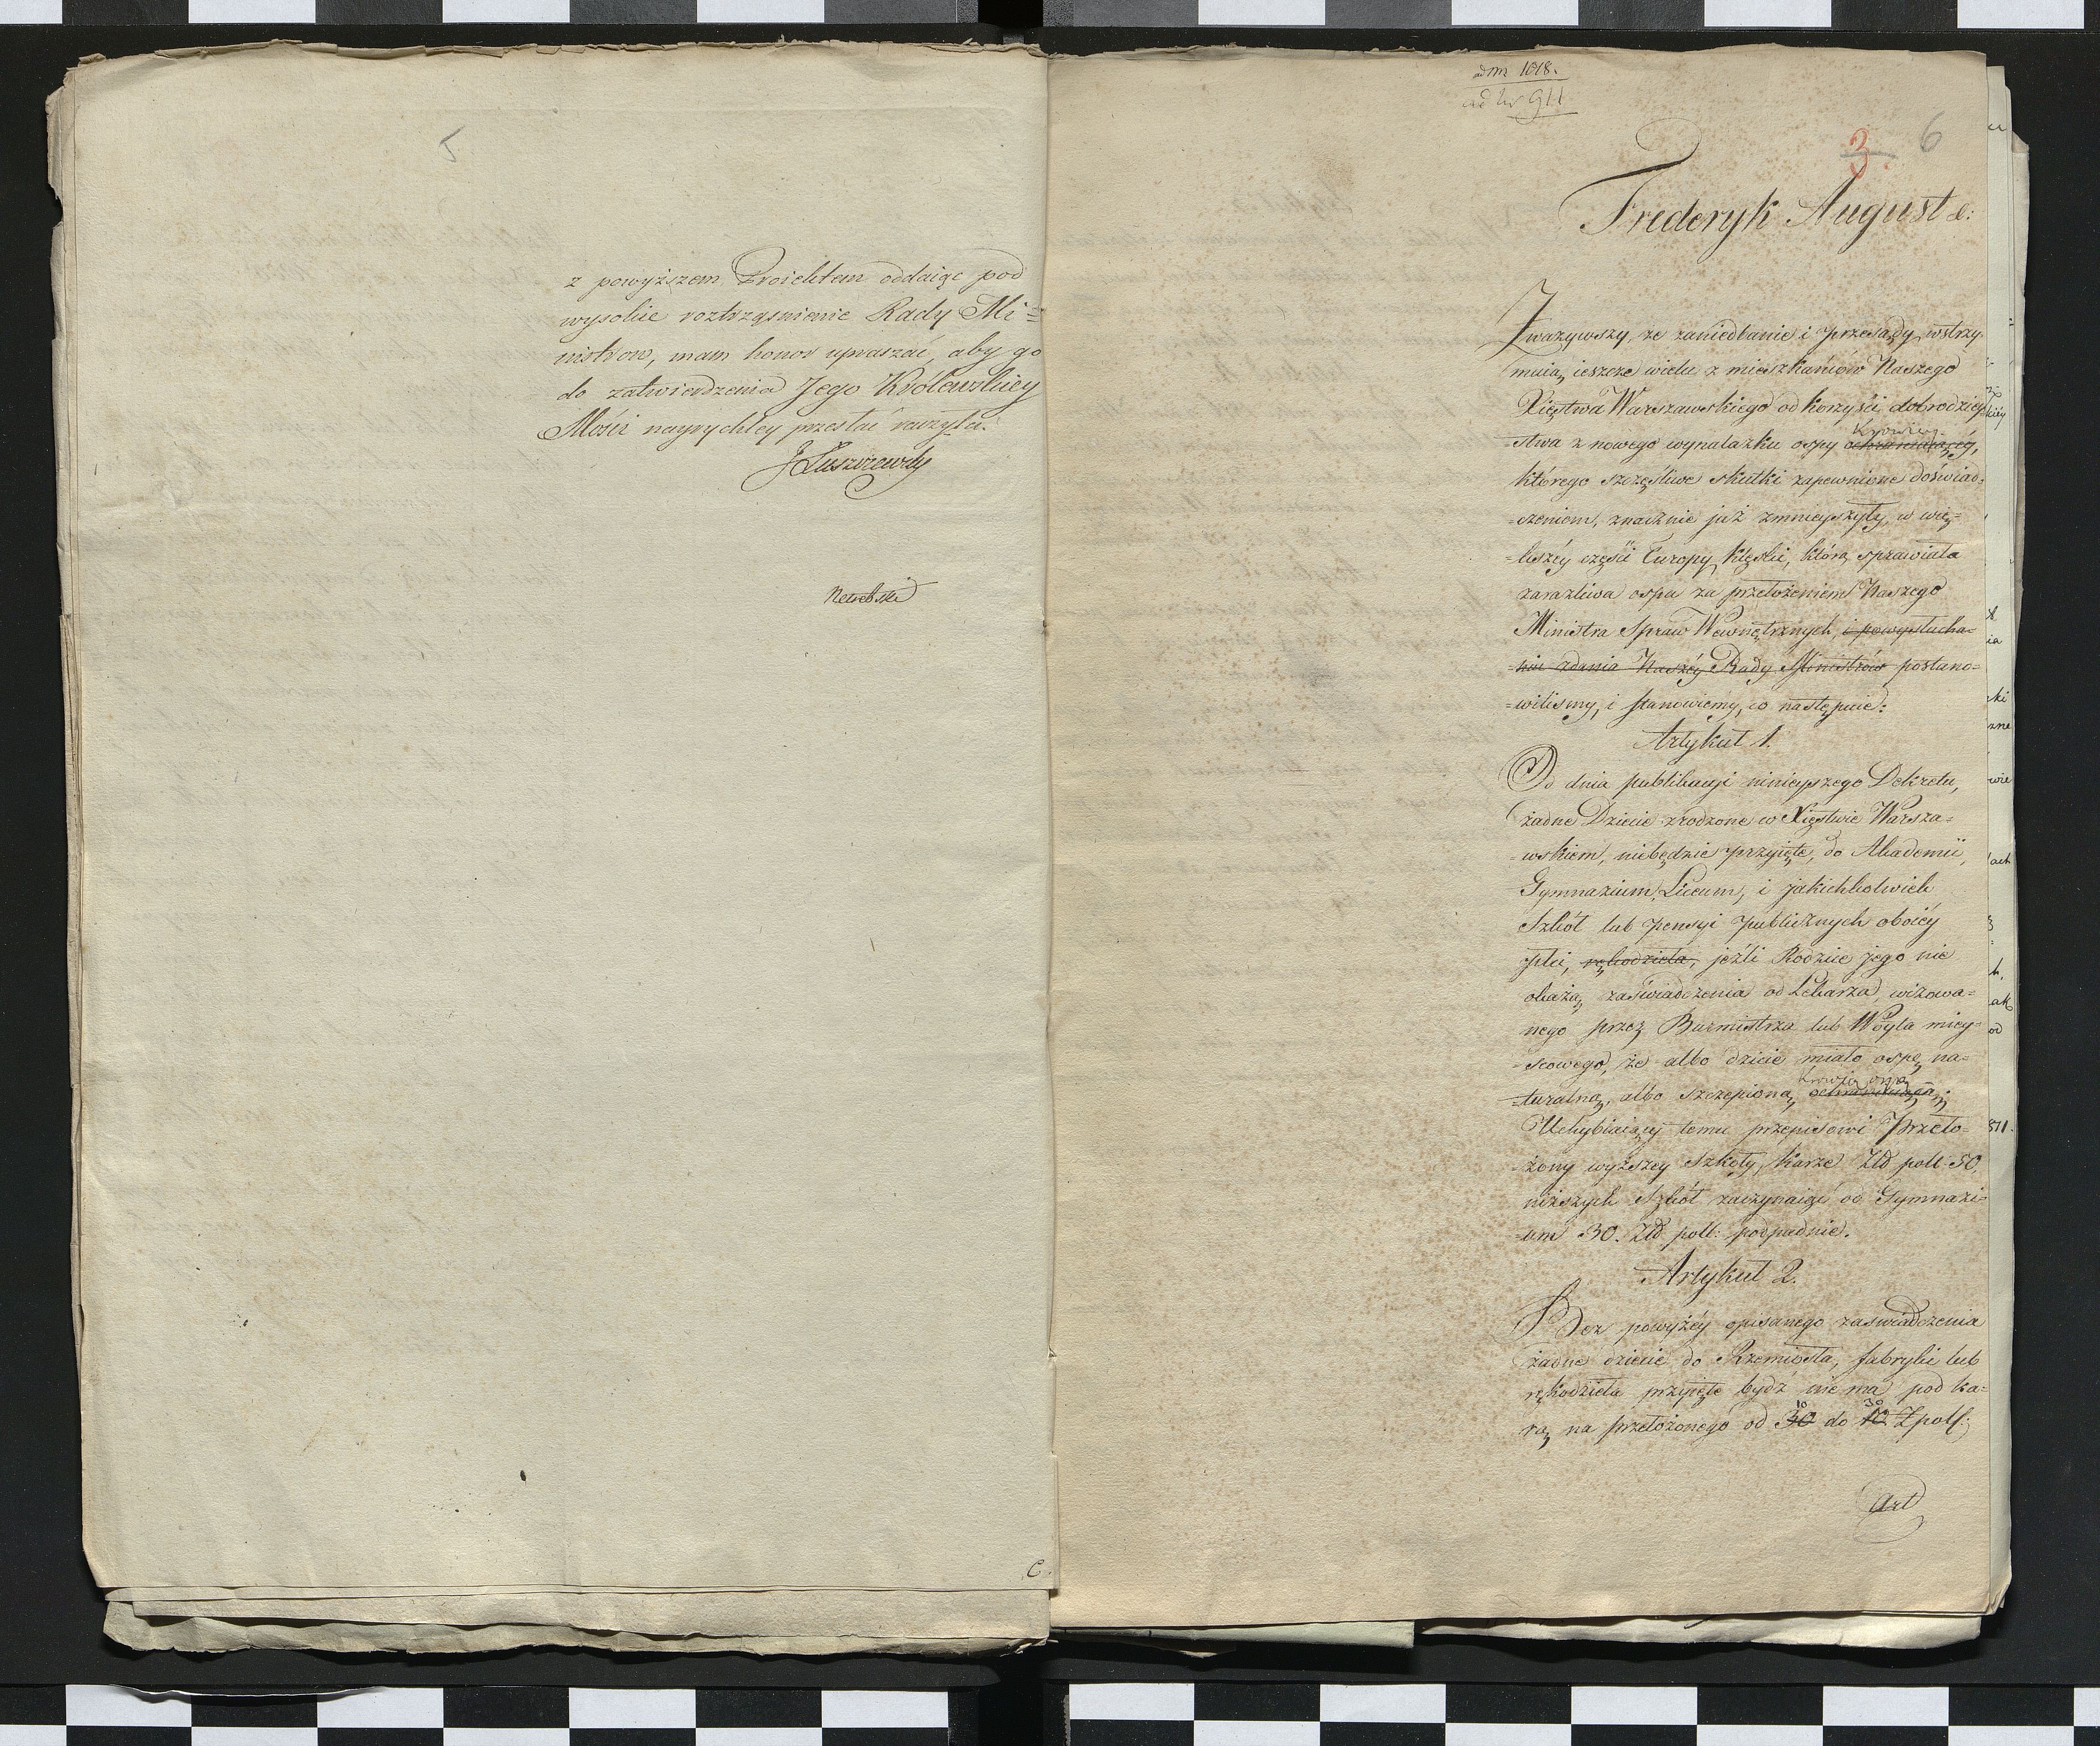 5
z powyższem Proiektem oddaiąc pod
wysokie roztrząsnienie Rady Mi=
nistrow, mam honor upraszać, aby go
do zatwierdzenia Jego Królewskiey
Mości nayrychley przesłać raczyła.
JŁuszczewsky
C.
ad nr 1018.
ad nr 911
3 6
Frederyk August &:
Zważywszy, że zaniedbanie i przesądy wstrzy-
muią ieszcze wielu z mieszkańców Naszego
Xięstwa Warszawskiego od korzyści dobrodziey-
krowiey
stwa z nowego wynalazku ospy ochraniaiącéy,
którego szczęśliwe skutki zapewnione doświad-
=czeniem, znacznie już zmnieyszyły, w wię=
=kszéy części Europy, klęski, którą sprawiała
zaraźliwa ospa za przełożeniem Naszego
Ministra Spraw Wewnętrznych, i po wysłucha=
=niu zdania Naszéy Rady Ministrów postano=
=wiliśmy, i stanowiemy, co następuie:
Artykuł 1.
Od dnia publikacyi ninieyszego Dekretu,
żadne Dziecie zrodzone w Xięstwie Warsza=
=wskiem, niebędzie przyięte, do Akademii,
Gymnazium, Liceum, i jakichkolwiek
Szkół lub pensyi publicznych oboiéy
płci, rękodzieła, jeźli Rodzice jego nie
okażą zaświadczenia od Lekarza, wizowa=
nego przez Burmistrza lub Wóyta miey=
=scowego, że albo dziecie miało ospę na=
krowią ospą
=turalną, albo szczepioną ochraniaiącą;
Uchybiaiący temu przepisowi Przeło=
żony wyższey Szkoły, karze Złł poll. 50,
niższych Szkół zaczynaiąc od Gymnazi=
=um 30. Złł poll: podpadnie.
Artykuł 2.
Bez powyżéy opisanego zaswiadczenia
żadne dziecie do Rzemiosła, fabryki lub
rękodzieła przyięte bydź nie ma pod ka=
10 30
rą na przełożonego od 30 do 10 Z poll:
Art